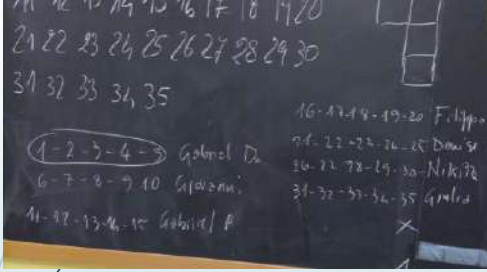 11 12 13 14 15 16 17 18 19 20
21 22 23 24 25 26 27 28 29 30
31 32 33 34 35
1-2-3-4-5 Gabriel D.
6-7-8-9 10 Giovanni
11-12-13-14-15 Gabriel P.
16-17-18-19-20 Filippo
21-22-23-24-25
26-27-28-29-30-Nikita
31-32-33-34-35 Giulia
X